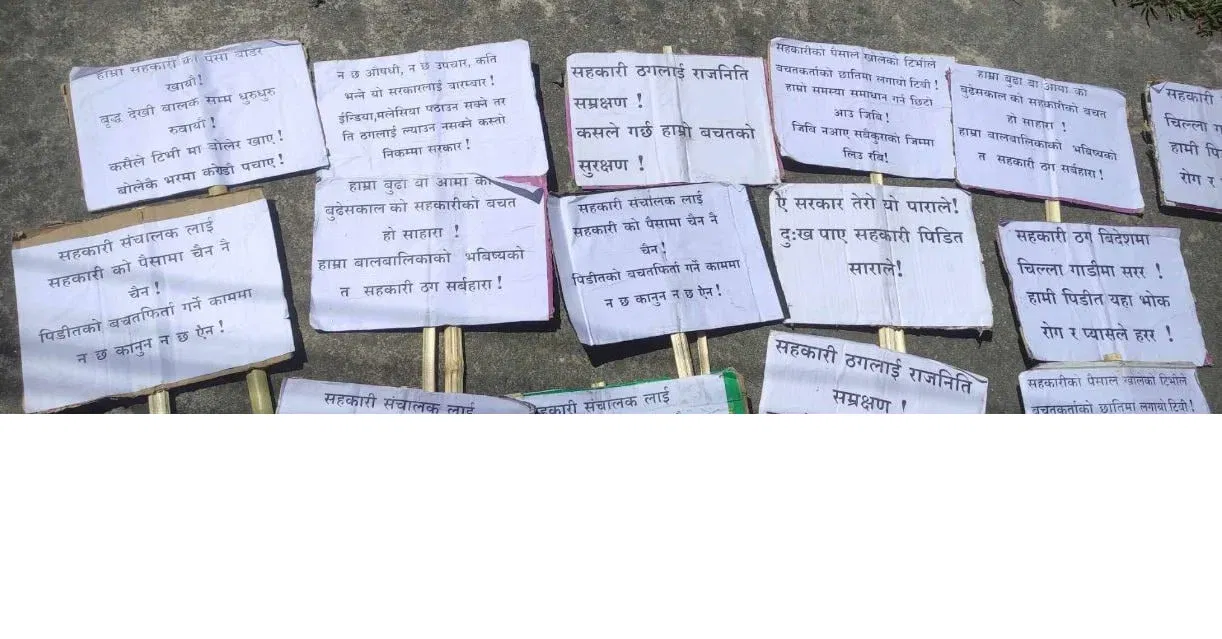 हाम्रो सहकारी को पैसा बाडेर
खायौ!
बृद्ध देखी बालक सम्म धुरुधुरु
रुवायौ!
कसैले टिभी मा बोलेर खाए!
बोलेकै भरमा करोडौ पचाए!
न छ औषधी, न छ उपचार, कति
भन्ने यो सरकारलाई वारम्वार!
ईन्डिया,मलेसिया पठाउन सक्ने तर
ति ठगलाई ल्याउन नसक्ने कस्तो
निकम्मा सरकार!
सहकारी ठगलाई राजनिति
सम्रक्षण !
कसले गर्छ हाम्रो बचतको
सुरक्षण !
सहकारीको पैसाले खोलेको टिभीले
बचतकर्ताको छातिमा लगायो टिबी!
हाम्रो समस्या समाधान गर्न छिटो
आउ जिबि!
जिबि नआए सबैकुराको जिम्मा
लिउ रबि!
हाम्रा बुढा बा आमा को
बुढेसकाल को सहकारीको बचत
हो साहारा !
हाम्रा बालबालिकाको भबिष्यको
त सहकारी ठग सर्बहारा!
सहकारी
चिल्ला
हामी
रोग र
सहकारी संचालक लाई
सहकारी को पैसामा चैन नै
चैन!
पिडीतको बचतफिर्ता गर्ने काममा
न छ कानुन न छ ऐन!
हाम्रा बुढा बा आमा को
बुढेसकाल को सहकारीको बचत
हो साहारा !
हाम्रा बालबालिकाको भबिष्यको
त सहकारी ठग सर्बहारा!
सहकारी संचालक लाई
सहकारी को पैसामा चैन नै
चैन!
पिडीतको बचतफिर्ता गर्ने काममा
न छ कानुन न छ ऐन!
ऐ सरकार तेरो यो पाराले!
दुःख पाए सहकारी पिडित
साराले!
सहकारी ठग बिदेशमा
चिल्ला गाडीमा सरर !
हामी पिडीत यहा भोक
रोग र प्यासले हरर !
सहकारी संचालक लाई
सहकारी संचालक लाई
सहकारी ठगलाई राजनिति
सम्रक्षण !
सहकारीको पैसाले खोलेको टिभीले
बचतकर्ताको छातिमा लगायो टिबी!